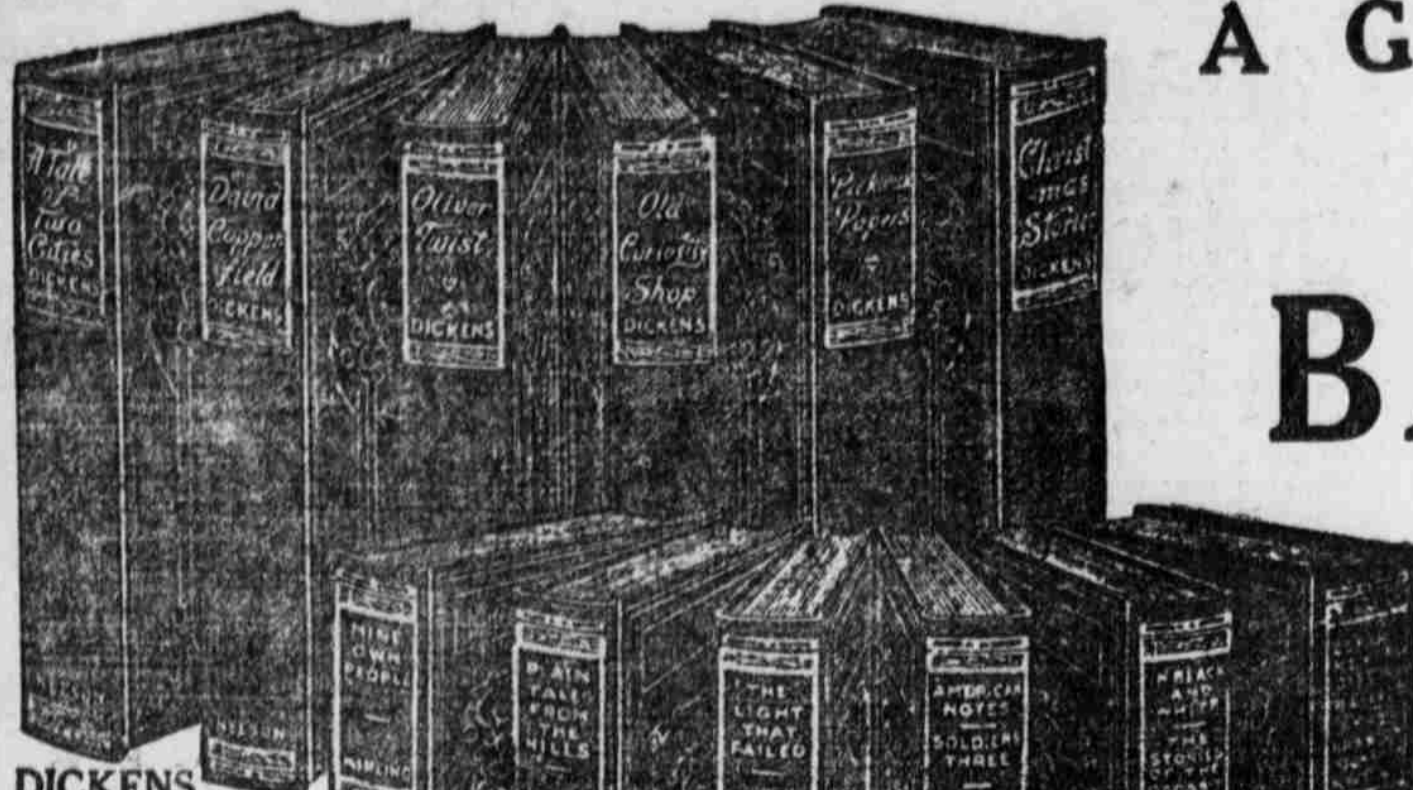 A G
BA
A Tale
of
Two
Cities
DICKENS
David
Copper
field
DICKENS
Oliver
Twist
DICKENS
Old
Curiosity
Shop
DICKENS
Pickwick
Papers
DICKENS
Christ
mas
Stories
DICKENS
NELSON
MINE
OWN
PEOPLE
KIPLING
PLAIN
TALES
FROM
THE
HILLS
THE
LIGHT
THAT
FAILED
AMERICAN
NOTES
SOLDIERS
THREE
IN BLACK
AND
WHITE
THE
STORIES
OF THE
DICKENS